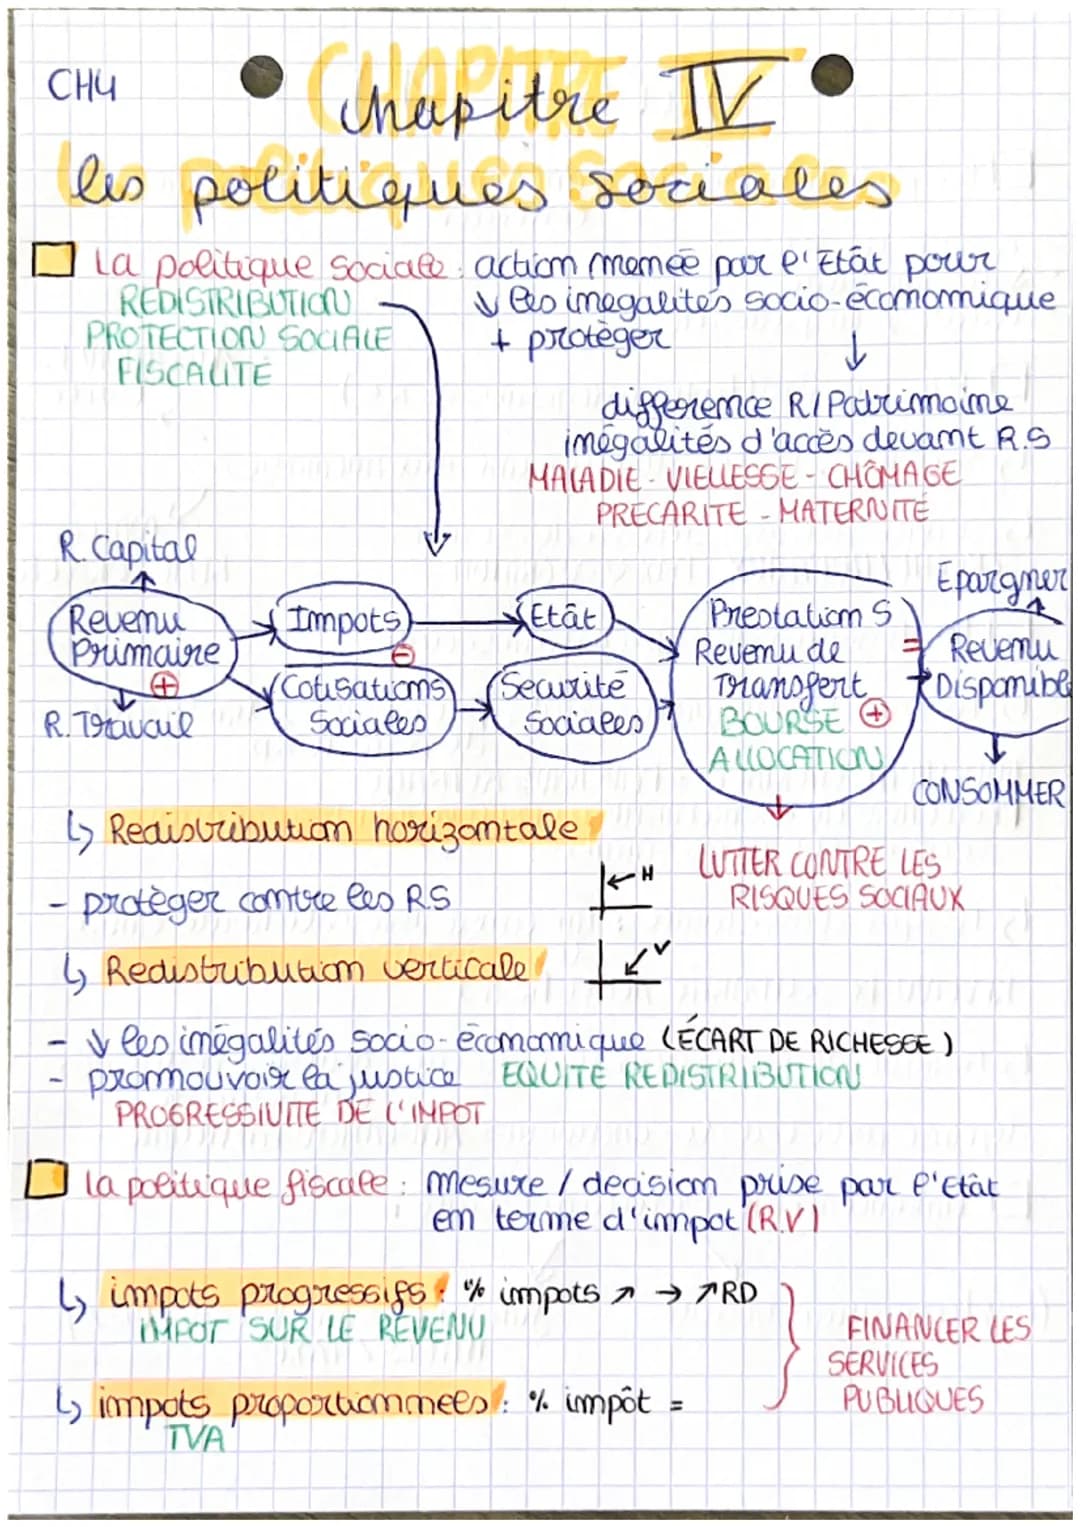 CH4
CHAPITRE IV
Chapitre IV
les politiques sociales
La politique sociale : action menée par l'Etât pour
REDISTRIBUTION
↓ les inegalités socio-économique
PROTECTION SOCIALE
+ protèger
FISCALITE
↓
difference R/Patrimoine
inégalités d'accès devant R.S
MALADIE - VIELLESSE - CHÔMAGE
PRECARITE - MATERNITÉ
R. Capital
Revenu
Primaire
+
R. Travail
Impots
-
Cotisations
Sociales
Etât
Securité
Sociales
Prestation S
Revenu de
Transfert
+
BOURSE
ALLOCATION
=
Epargner
Revenu
Disponible
CONSOMMER
LUTTER CONTRE LES
RISQUES SOCIAUX
↳ Redistribution horizontale
← H
- protèger contre les RS
↳ Redistribution verticale
↙ V
- ↓ les inégalités socio-économique (ÉCART DE RICHESSE)
- prommouvoir la justice EQUITE REDISTRIIBUTION
PROGRESSIVITE DE L'IMPOT
la politique fiscale : mesure / decision prise par l'Etât
en terme d'impot (R.V)
↳ impots progressifs : % impots ↗ → ↗ RD
IMPOT SUR LE REVENU
↳ impots proportionnees : % impôt =
TVA
FINANCER LES
SERVICES
PUBLIQUES